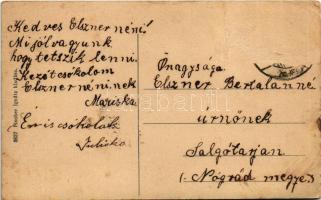 Kedves Elszner néni!
Mi jól vagyunk
hogy tetszik lenni.
Kezét csókolom
Elszner néninek
Mariska
Én is csókolok
Juliska
Önagysága
Elszner Bertalanné
úrnőnek
Salgótarján
(Nógrád megye)